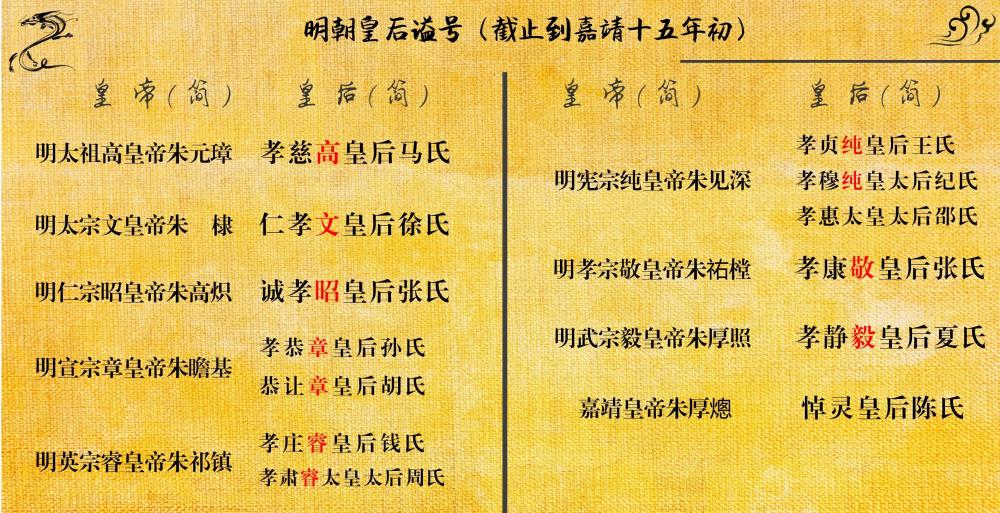 明朝皇后谥号（截止到嘉靖十五年初）
皇帝（简） 皇后（简）
明太祖高皇帝朱元璋 孝慈高皇后马氏
明太宗文皇帝朱 棣 仁孝文皇后徐氏
明仁宗昭皇帝朱高炽 诚孝昭皇后张氏
明宣宗章皇帝朱瞻基
孝恭章皇后孙氏
恭让章皇后胡氏
明英宗睿皇帝朱祁镇
孝庄睿皇后钱氏
孝肃睿太皇太后周氏
皇帝（简） 皇后（简）
明宪宗纯皇帝朱见深
孝贞纯皇后王氏
孝穆纯皇太后纪氏
孝惠太皇太后邵氏
明孝宗敬皇帝朱祐樘 孝康敬皇后张氏
明武宗毅皇帝朱厚照 孝静毅皇后夏氏
嘉靖皇帝朱厚熜 悼灵皇后陈氏